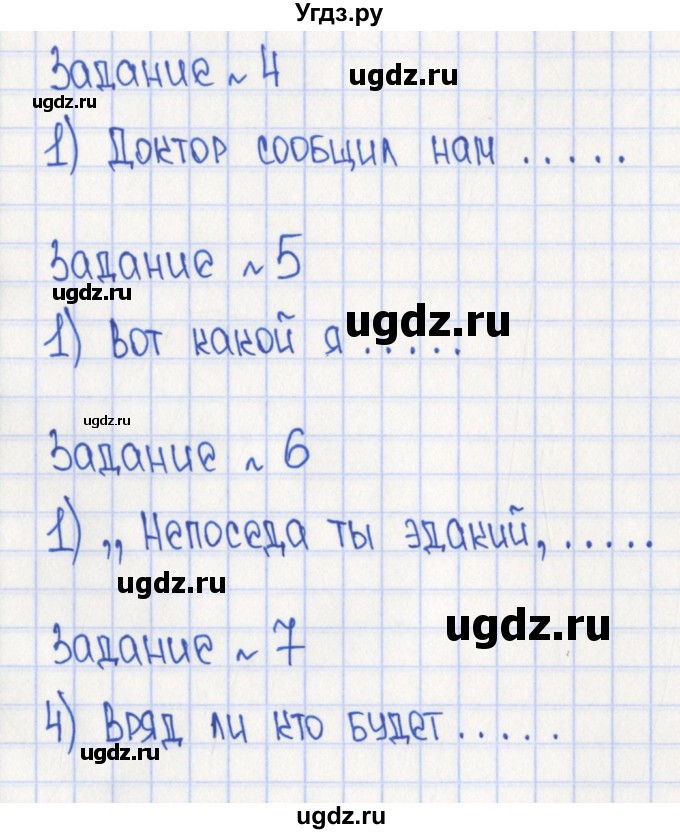 Угдз.ру
Задание ~ 4
ugdz.ru
ugdz.ru
1) Доктор сообщил нам .....
Задание ~ 5
ugdz.ru
ugdz.ru
1) Вот какой я .....
ugdz.ru
Задание ~ 6
1) ,, Непоседа ты эдакий, .....
ugdz.ru
ugdz.ru
Задание ~ 7
4) Вряд ли кто будет .....
ugdz.ru
ugdz.ru